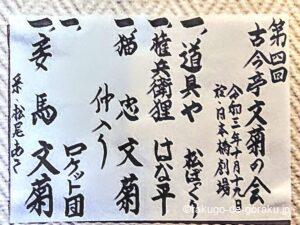 第四回
古今亭文菊の会
令和三年十月十九日
於・日本橋劇場
一、道具や 松ぼっくり
一、権兵衛狸 はな平
一、猫忠 文菊
仲入り
一、 ロケット団
一、妾馬 文菊
©rakugo-de-goraku.com